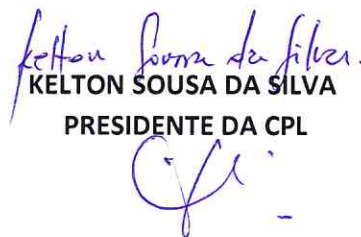 Kelton Sousa da Silva.
KELTON SOUSA DA SILVA
PRESIDENTE DA CPL